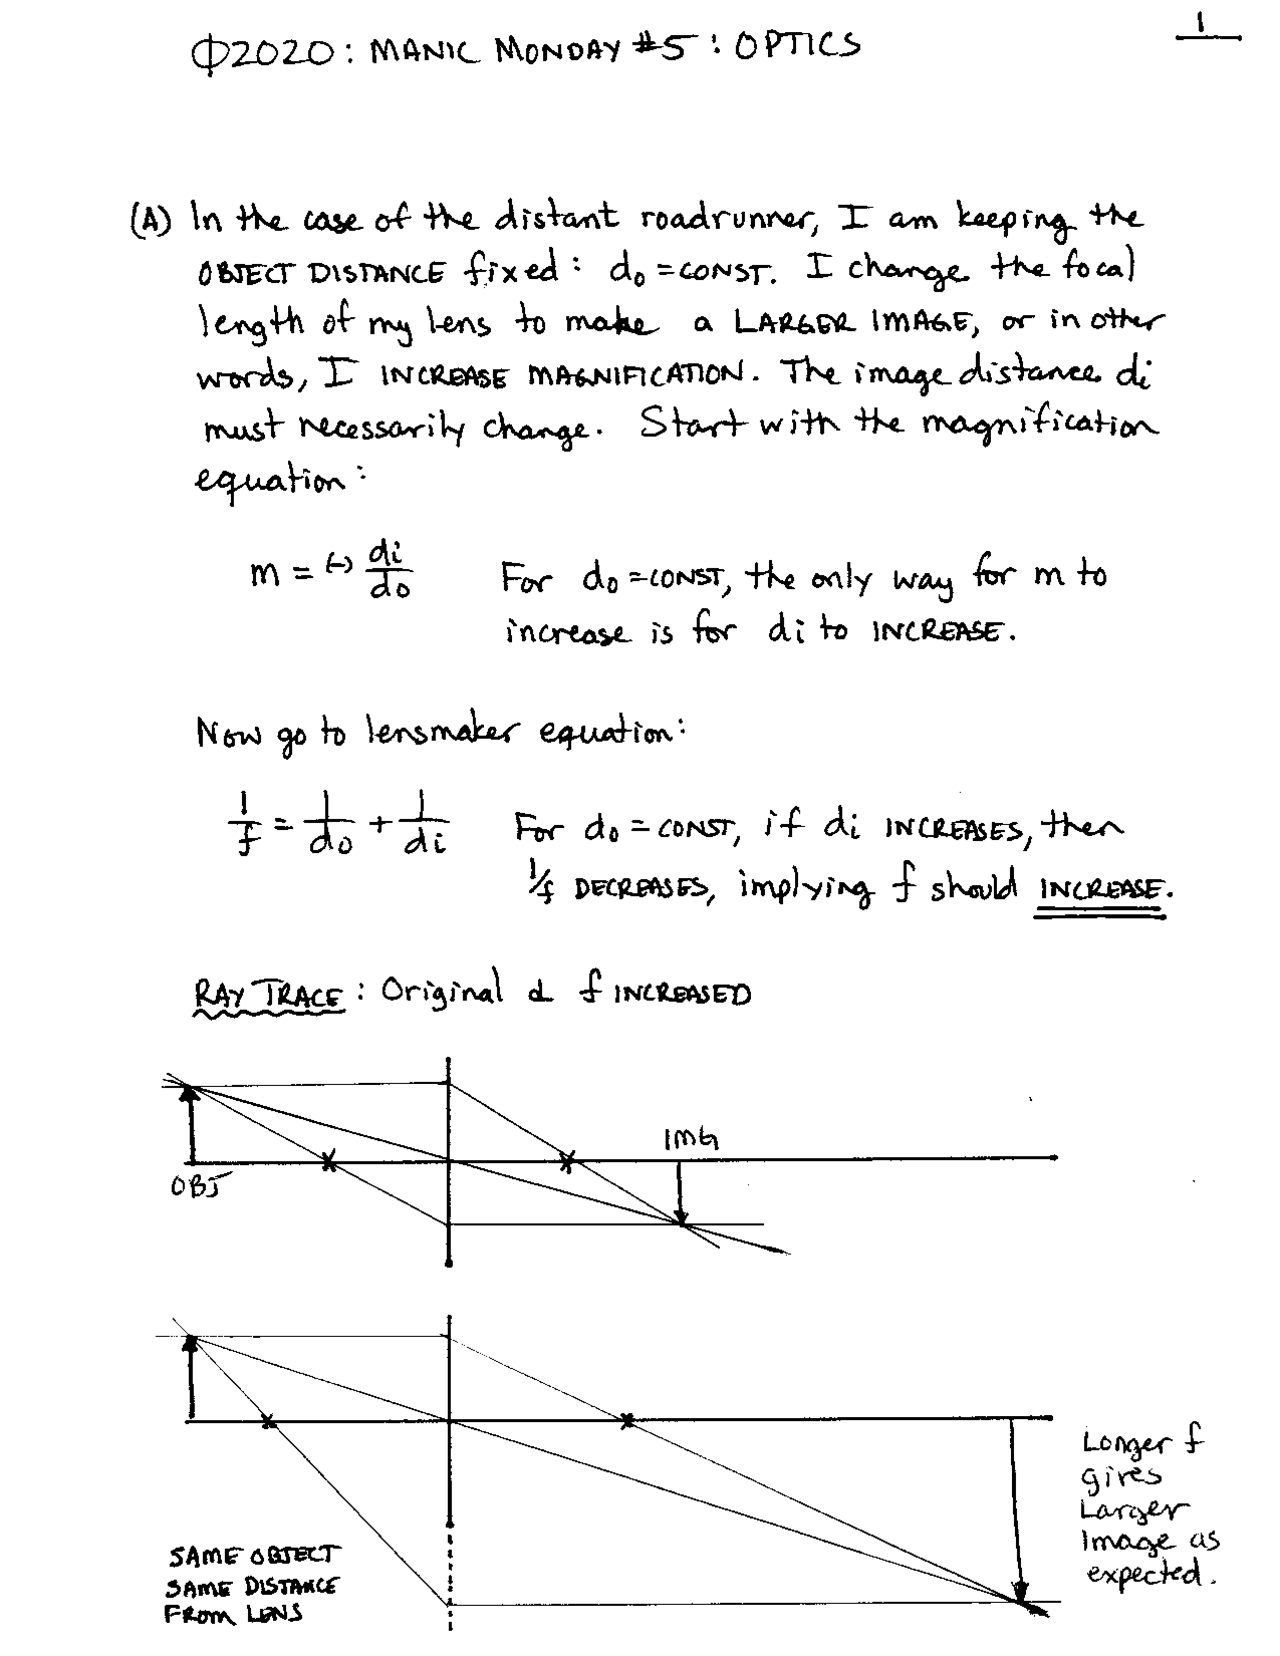 1
Φ2020: MANIC MONDAY #5: OPTICS
(A) In the case of the distant roadrunner, I am keeping the
OBJECT DISTANCE fixed: do = CONST. I change the focal
length of my lens to make a LARGER IMAGE, or in other
words, I INCREASE MAGNIFICATION. The image distance di
must necessarily change. Start with the magnification
equation:
m = (-) di/do For do = CONST, the only way for m to
increase is for di to INCREASE.
Now go to lensmaker equation:
1/f = 1/do + 1/di For do = CONST, if di INCREASES, then
1/f DECREASES, implying f should INCREASE.
RAY TRACE: Original & f INCREASED
IMG
OBJ
Longer f
gives
Larger
Image as
expected.
SAME OBJECT
SAME DISTANCE
FROM LENS